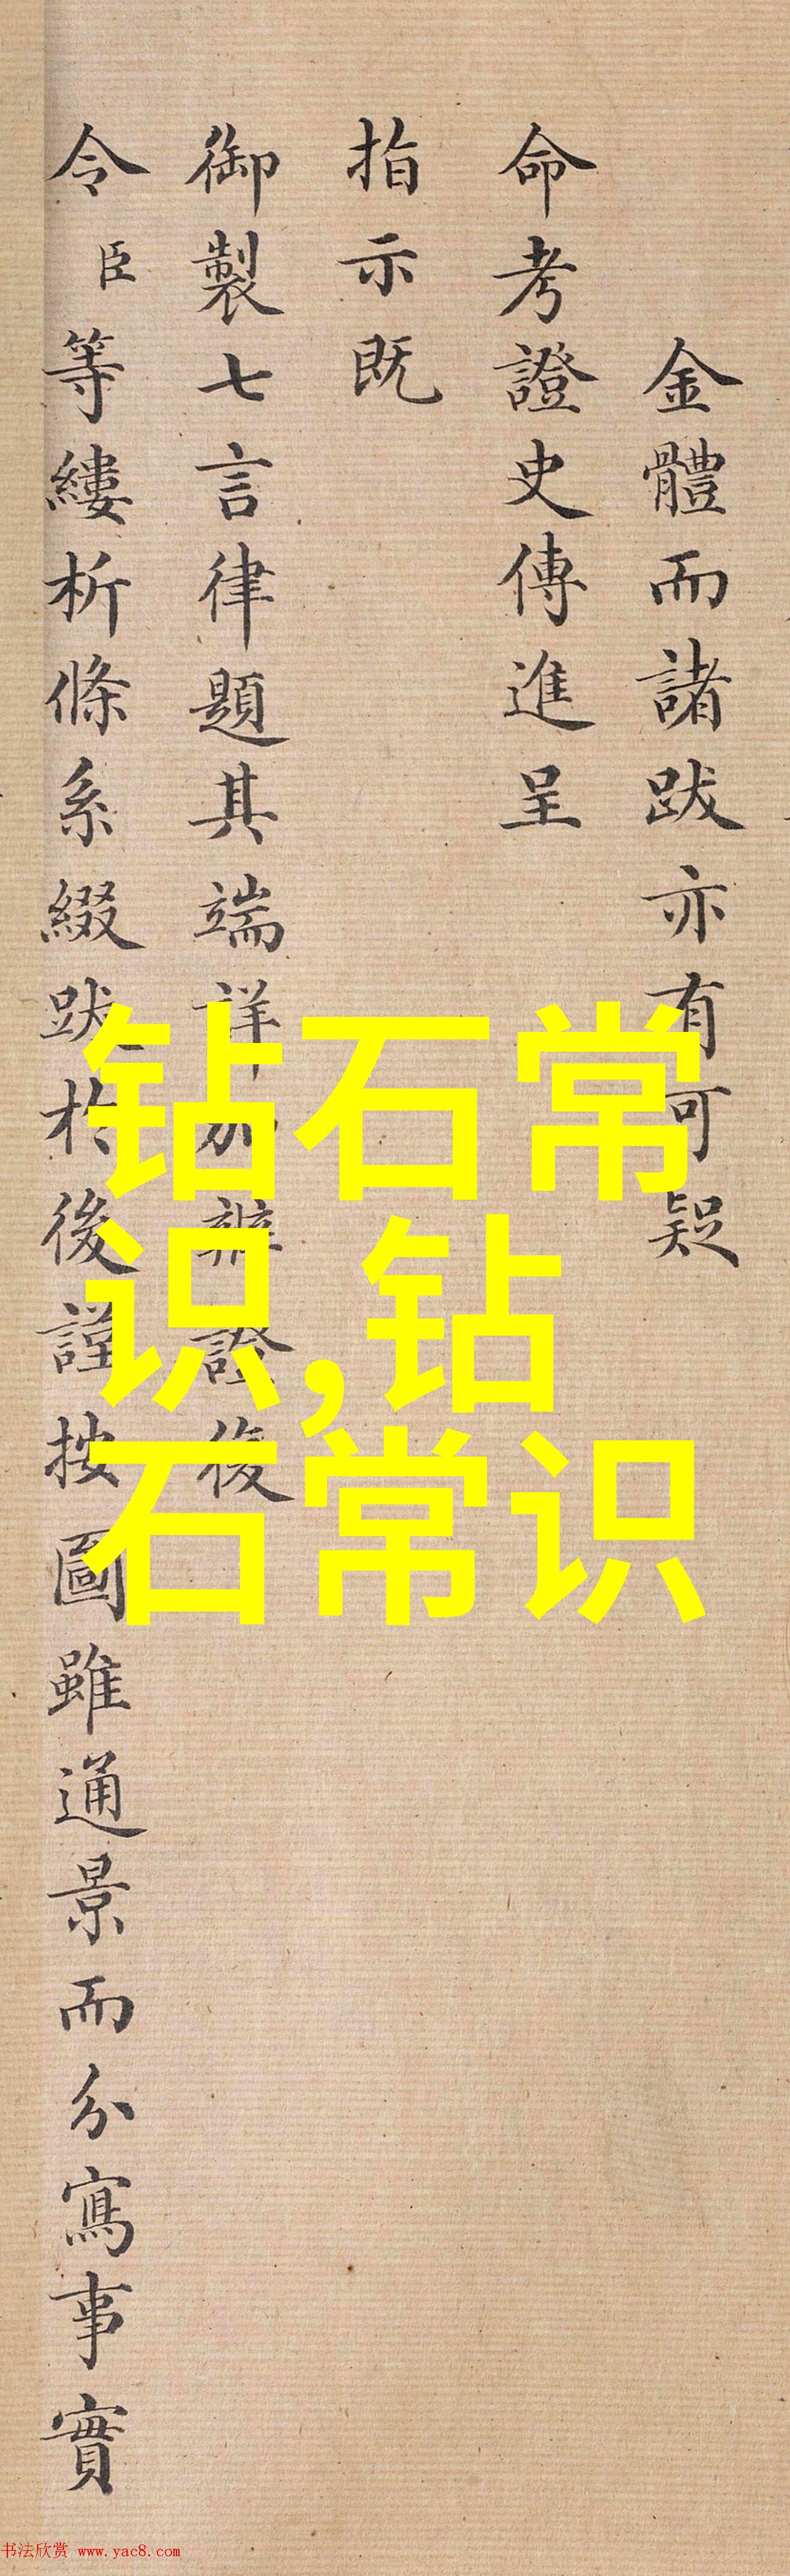 金體而諸跋亦有可疑
命考證史傳進呈
指示既
御製七言律題其端詳加辨證後
令臣等縷析條系綴跋於後謹按圖雖通景而分寫事實
钻石常
识,钻
石常识
书法欣赏 www.yac8.com